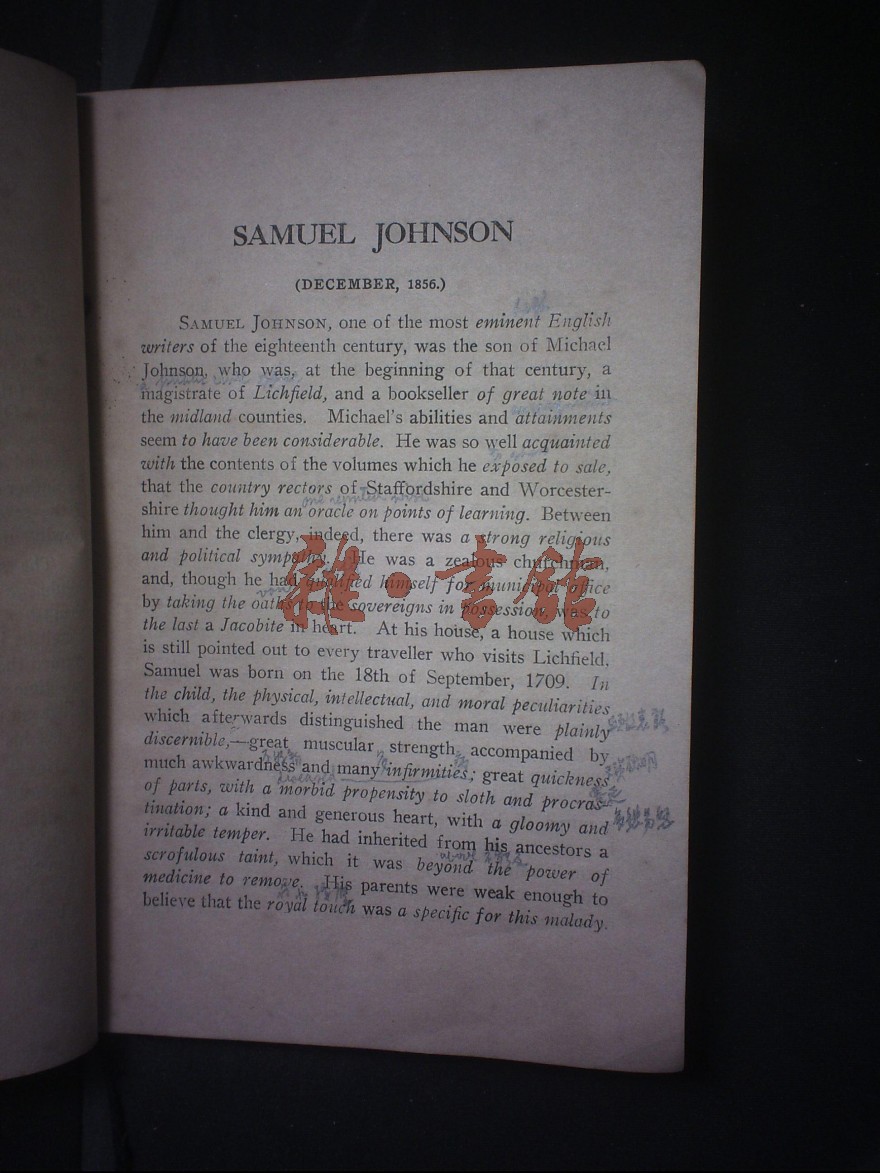 SAMUEL JOHNSON
(DECEMBER, 1856.)
SAMUEL JOHNSON, one of the most eminent English
writers of the eighteenth century, was the son of Michael
Johnson, who was, at the beginning of that century, a
magistrate of Lichfield, and a bookseller of great note in
the midland counties. Michael's abilities and attainments
seem to have been considerable. He was so well acquainted
with the contents of the volumes which he exposed to sale,
that the country rectors of Staffordshire and Worcester-
shire thought him an oracle on points of learning. Between
him and the clergy, indeed, there was a strong religious
and political sympathy. He was a zealous churchman,
and, though he had qualified himself for municipal office
by taking the oaths to the sovereigns in possession, was to
the last a Jacobite in heart. At his house, a house which
is still pointed out to every traveller who visits Lichfield,
Samuel was born on the 18th of September, 1709. In
the child, the physical, intellectual, and moral peculiarities
which afterwards distinguished the man were plainly
discernible,—great muscular strength, accompanied by
much awkwardness and many infirmities; great quickness
of parts, with a morbid propensity to sloth and procras-
tination; a kind and generous heart, with a gloomy and
irritable temper. He had inherited from his ancestors a
scrofulous taint, which it was beyond the power of
medicine to remove. His parents were weak enough to
believe that the royal touch was a specific for this malady.
雜·書館